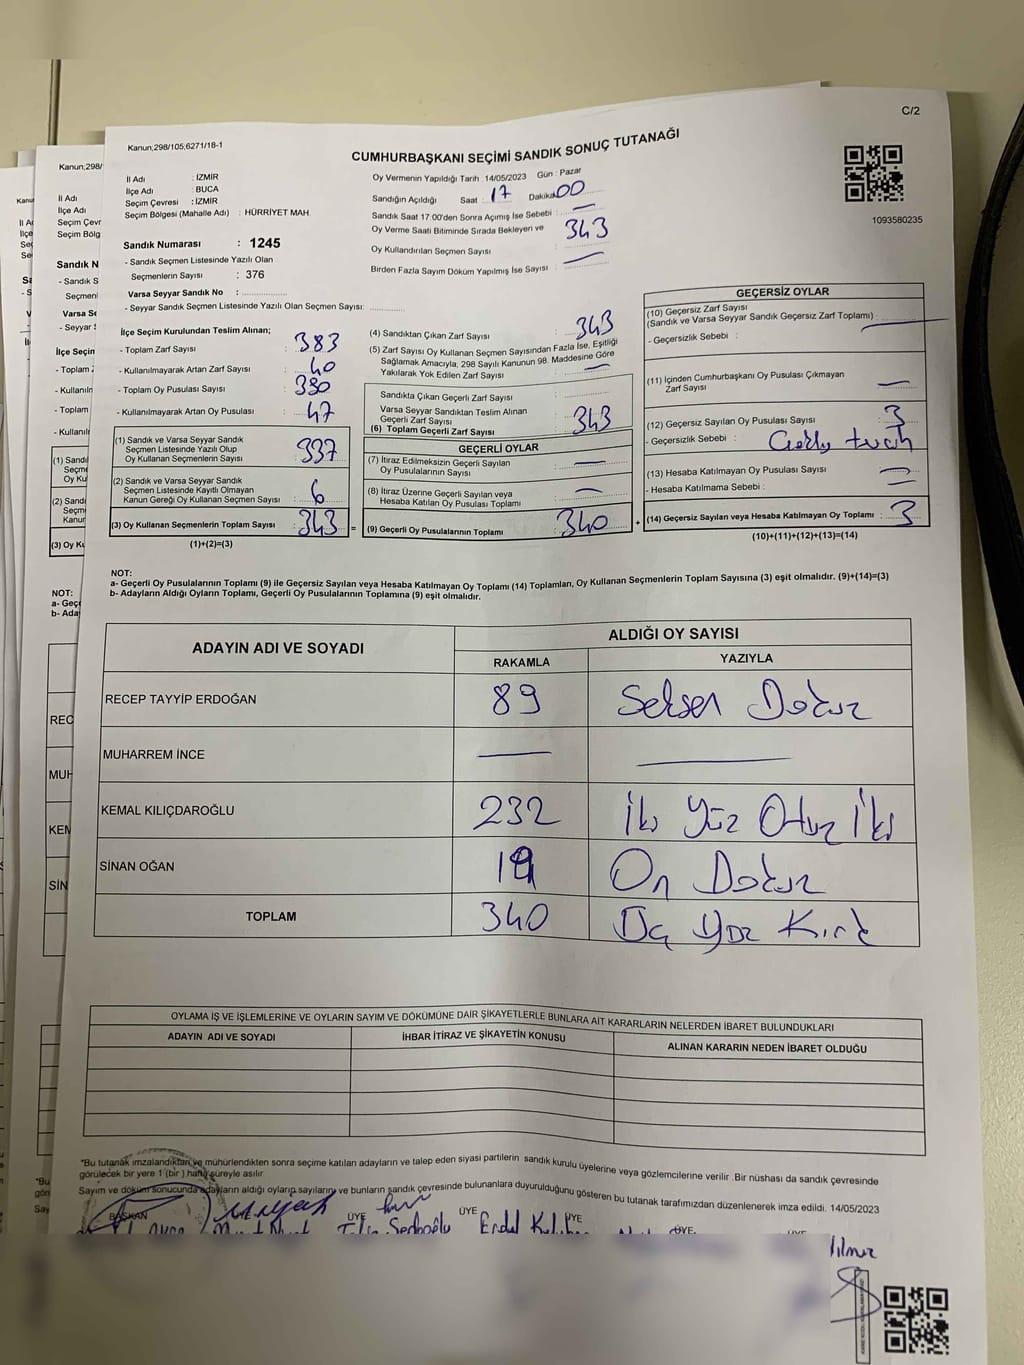 C/2
Kanun;298/105,6271/18-1
CUMHURBAŞKANI SEÇİMİ SANDIK SONUÇ TUTANAĞI
İl Adı : İZMİR
İlçe Adı : BUCA
Seçim Çevresi : İZMİR
Seçim Bölgesi (Mahalle Adı) : HÜRRİYET MAH.
Sandık Numarası : 1245
- Sandık Seçmen Listesinde Yazılı Olan
Seçmenlerin Sayısı : 376
Varsa Seyyar Sandık No :
- Seyyar Sandık Seçmen Listesinde Yazılı Olan Seçmen Sayısı:
Oy Vermenin Yapıldığı Tarih 14/05/2023 Gün : Pazar
Sandığın Açıldığı Saat : 17 Dakika: 00
Sandık Saat 17:00'den Sonra Açımış İse Sebebi : —
Oy Verme Saati Bitiminde Sırada Bekleyen ve
Oy Kullandırılan Seçmen Sayısı 343
Birden Fazla Sayım Döküm Yapılmış İse Sayısı : —
1093580235
İlçe Seçim Kurulundan Teslim Alınan;
- Toplam Zarf Sayısı : 383
- Kullanılmayarak Artan Zarf Sayısı : 40
- Toplam Oy Pusulası Sayısı : 390
- Kullanılmayarak Artan Oy Pusulası : 47
(1) Sandık ve Varsa Seyyar Sandık
Seçmen Listesinde Yazılı Olup
Oy Kullanan Seçmenlerin Sayısı : 337
(2) Sandık ve Varsa Seyyar Sandık
Seçmen Listesinde Kayıtlı Olmayan
Kanun Gereği Oy Kullanan Seçmen Sayısı : 6
(3) Oy Kullanan Seçmenlerin Toplam Sayısı : 343
(1)+(2)=(3)
(4) Sandıktan Çıkan Zarf Sayısı : 343
(5) Zarf Sayısı Oy Kullanan Seçmen Sayısından Fazla İse, Eşitliği
Sağlamak Amacıyla, 298 Sayılı Kanunun 98. Maddesine Göre
Yakılarak Yok Edilen Zarf Sayısı : —
Sandıkta Çıkan Geçerli Zarf Sayısı :
Varsa Seyyar Sandıktan Teslim Alınan
Geçerli Zarf Sayısı :
(6) Toplam Geçerli Zarf Sayısı : 343
GEÇERLİ OYLAR
(7) İtiraz Edilmeksizin Geçerli Sayılan
Oy Pusulalarının Sayısı : —
(8) İtiraz Üzerine Geçerli Sayılan veya
Hesaba Katılan Oy Pusulası Toplamı : —
= (9) Geçerli Oy Pusulalarının Toplamı : 340
GEÇERSİZ OYLAR
(10) Geçersiz Zarf Sayısı
(Sandık ve Varsa Seyyar Sandık Geçersiz Zarf Toplamı) : —
- Geçersizlik Sebebi :
(11) İçinden Cumhurbaşkanı Oy Pusulası Çıkmayan
Zarf Sayısı : —
(12) Geçersiz Sayılan Oy Pusulası Sayısı : 3
- Geçersizlik Sebebi :
(13) Hesaba Katılmayan Oy Pusulası Sayısı : —
- Hesaba Katılmama Sebebi : —
+ (14) Geçersiz Sayılan veya Hesaba Katılmayan Oy Toplamı : 3
(10)+(11)+(12)+(13)=(14)
NOT:
a- Geçerli Oy Pusulalarının Toplamı (9) ile Geçersiz Sayılan veya Hesaba Katılmayan Oy Toplamı (14) Toplamları, Oy Kullanan Seçmenlerin Toplam Sayısına (3) eşit olmalıdır. (9)+(14)=(3)
b- Adayların Aldığı Oyların Toplamı, Geçerli Oy Pusulalarının Toplamına (9) eşit olmalıdır.
ADAYIN ADI VE SOYADI ALDIĞI OY SAYISI
RAKAMLA YAZIYLA
RECEP TAYYİP ERDOĞAN 89 Seksen Dokuz
MUHARREM İNCE — —
KEMAL KILIÇDAROĞLU 232 İki Yüz Otuz İki
SİNAN OĞAN 19 On Dokuz
TOPLAM 340 Üç Yüz Kırk
OYLAMA İŞ VE İŞLEMLERİNE VE OYLARIN SAYIM VE DÖKÜMÜNE DAİR ŞİKAYETLERLE BUNLARA AİT KARARLARIN NELERDEN İBARET BULUNDUKLARI
ADAYIN ADI VE SOYADI İHBAR İTİRAZ VE ŞİKAYETİN KONUSU ALINAN KARARIN NEDEN İBARET OLDUĞU
"Bu tutanak imzalandıktan ve mühürlendikten sonra seçime katılan adayların ve talep eden siyasi partilerin sandık kurulu üyelerine veya gözlemcilerine verilir .Bir nüshası da sandık çevresinde
görülecek bir yere 1 (bir ) hafta süreyle asılır.
Sayım ve döküm sonucunda adayların aldığı oyların sayılarını ve bunların sandık çevresinde bulunanlara duyurulduğunu gösteren bu tutanak tarafımızdan düzenlenerek imza edildi. 14/05/2023
BAŞKAN ÜYE ÜYE ÜYE ÜYE ÜYE
Yılmaz